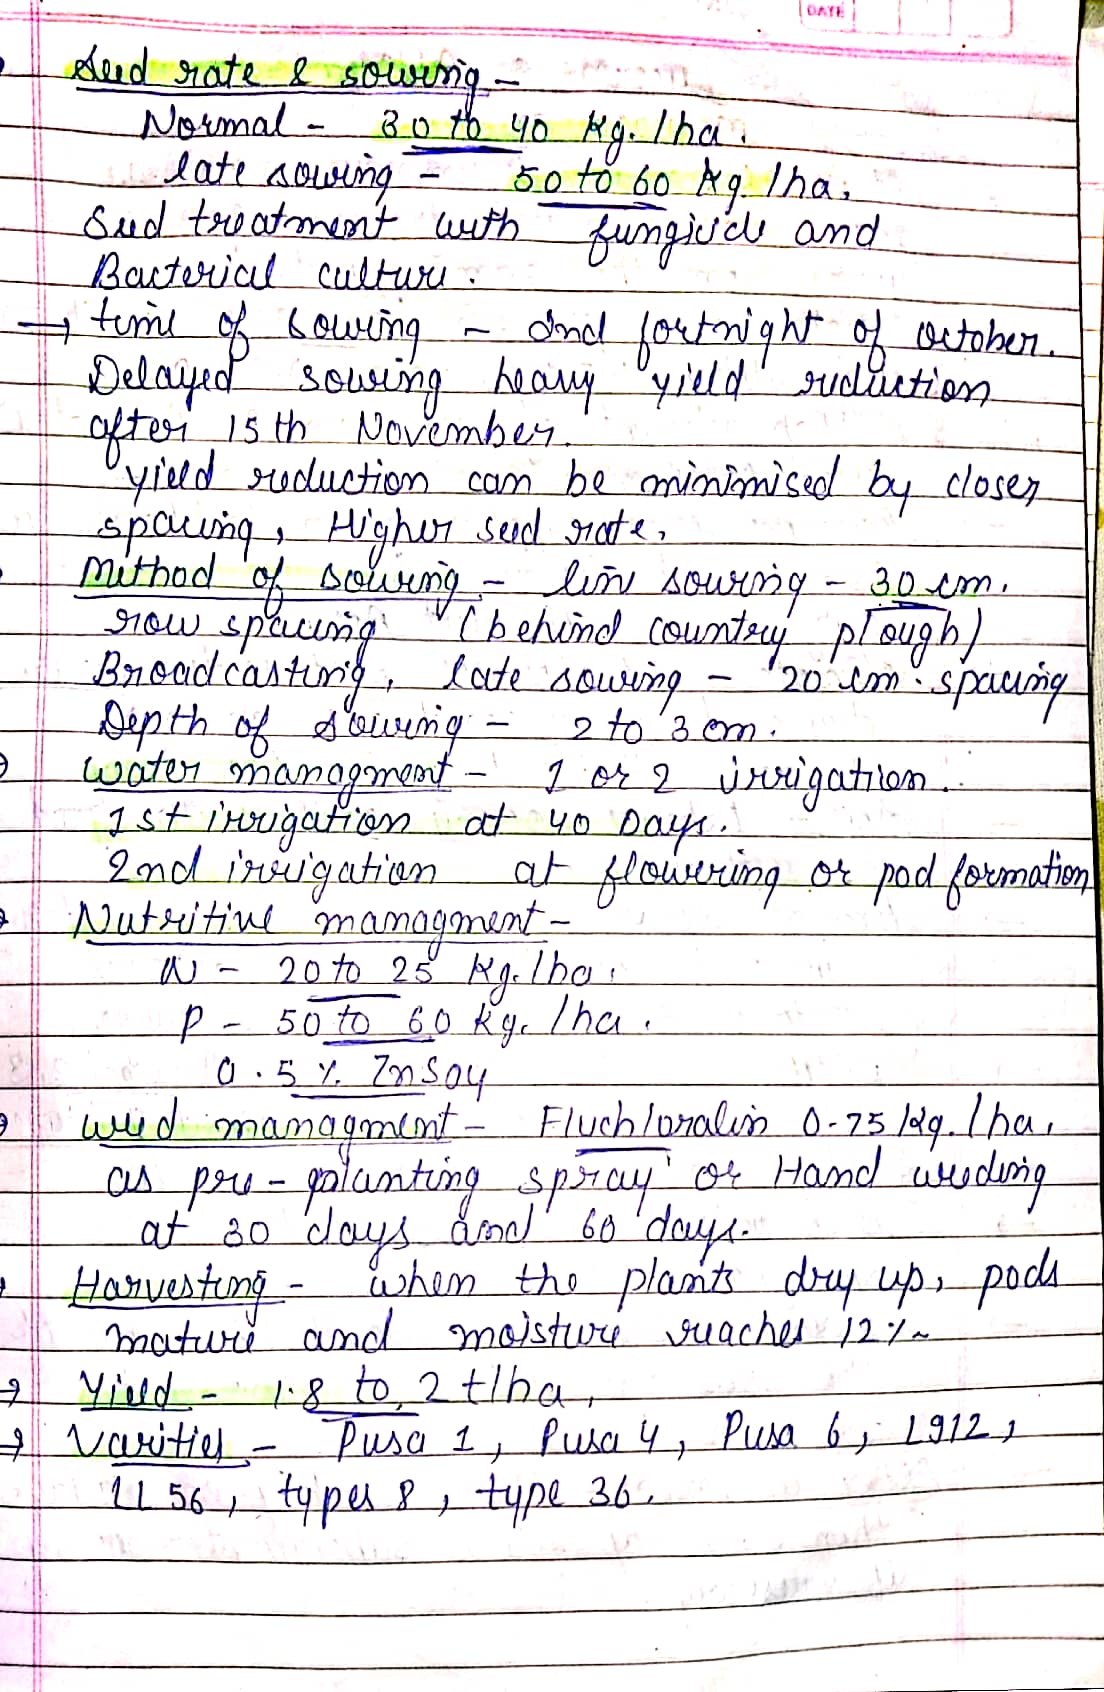 DATE
Seed rate & sowing -
Normal - 30 to 40 Kg./ha.
late sowing - 50 to 60 Kg./ha.
Seed treatment with fungicide and
Bacterial culture.
→ time of sowing - 2nd fortnight of October.
Delayed sowing heavy yield reduction
after 15th November.
yield reduction can be minimised by closer
spacing, Higher seed rate.
Method of sowing - line sowing - 30 cm.
row spacing (behind country plough)
Broadcasting, late sowing - 20 cm. spacing
Depth of sowing - 2 to 3 cm.
→ water managment - 1 or 2 irrigation.
1st irrigation at 40 Days.
2nd irrigation at flowering or pod formation
→ Nutritive managment -
N - 20 to 25 Kg./ha.
P - 50 to 60 Kg./ha.
0.5 % ZnSO4
→ weed managment - Fluchloralin 0.75 Kg./ha,
as pre-planting spray or Hand weeding
at 30 days and 60 days.
→ Harvesting - when the plants dry up, pods
mature and moisture reaches 12%
→ Yield - 1.8 to 2 t/ha,
→ Varities - Pusa 1, Pusa 4, Pusa 6, L912,
LL 56, types 8, type 36.